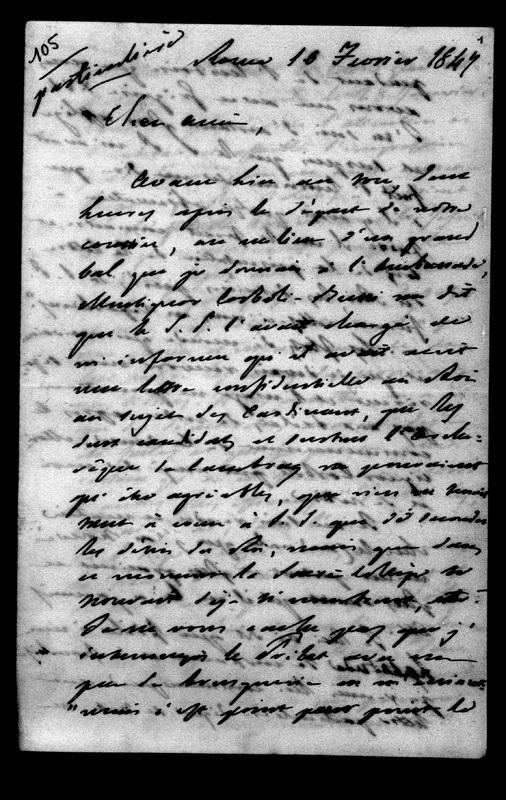 105
particulière
1
Rome 10 Février 1847
Cher ami,
Avant hier au soir, deux
heures après le départ de notre
courrier, au milieu d'un grand
bal que je donnais à l'Ambassade,
Monsignor Corboli-Bussi me dit
que le S. P. l'avait chargé de
m'informer qu'il avait écrit
une lettre confidentielle au Roi
au sujet des Cardinaux, que les
deux candidats et surtout l'Arche-
vêque de Cambray ne pouvaient
qu'être agréables, que rien ne tenait
tant à cœur à S. S. que de seconder
les désirs du Roi, mais que dans
ce moment le Sacré Collège se
trouvant déjà si nombreux,
Je ne vous cache pas que j'
interrompis le Prélat avec un
peu de brusquerie en m'écriant:
"mais c'est point pour point le